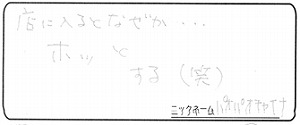 店に入るとなぜか・・・
ホッと
する（笑）
ニックネーム パオパオチャイナ